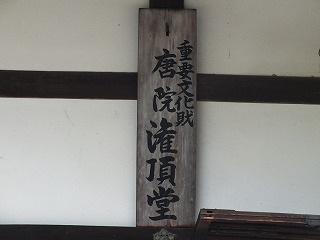 重要文化財
唐院灌頂堂